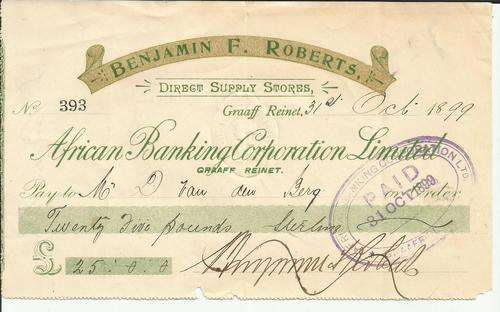 BENJAMIN F. ROBERTS,
DIRECT SUPPLY STORES,
No 393
Graaff Reinet, 31st Oct 1899
African Banking Corporation Limited
GRAAFF REINET.
Pay to Mr D Van den Berg or Order
Twenty Five pounds Sterling
£ 25 : 0 : 0 Benjamin F. Roberts
BANKING CORPORATION LTD.
PAID
31 OCT 1899